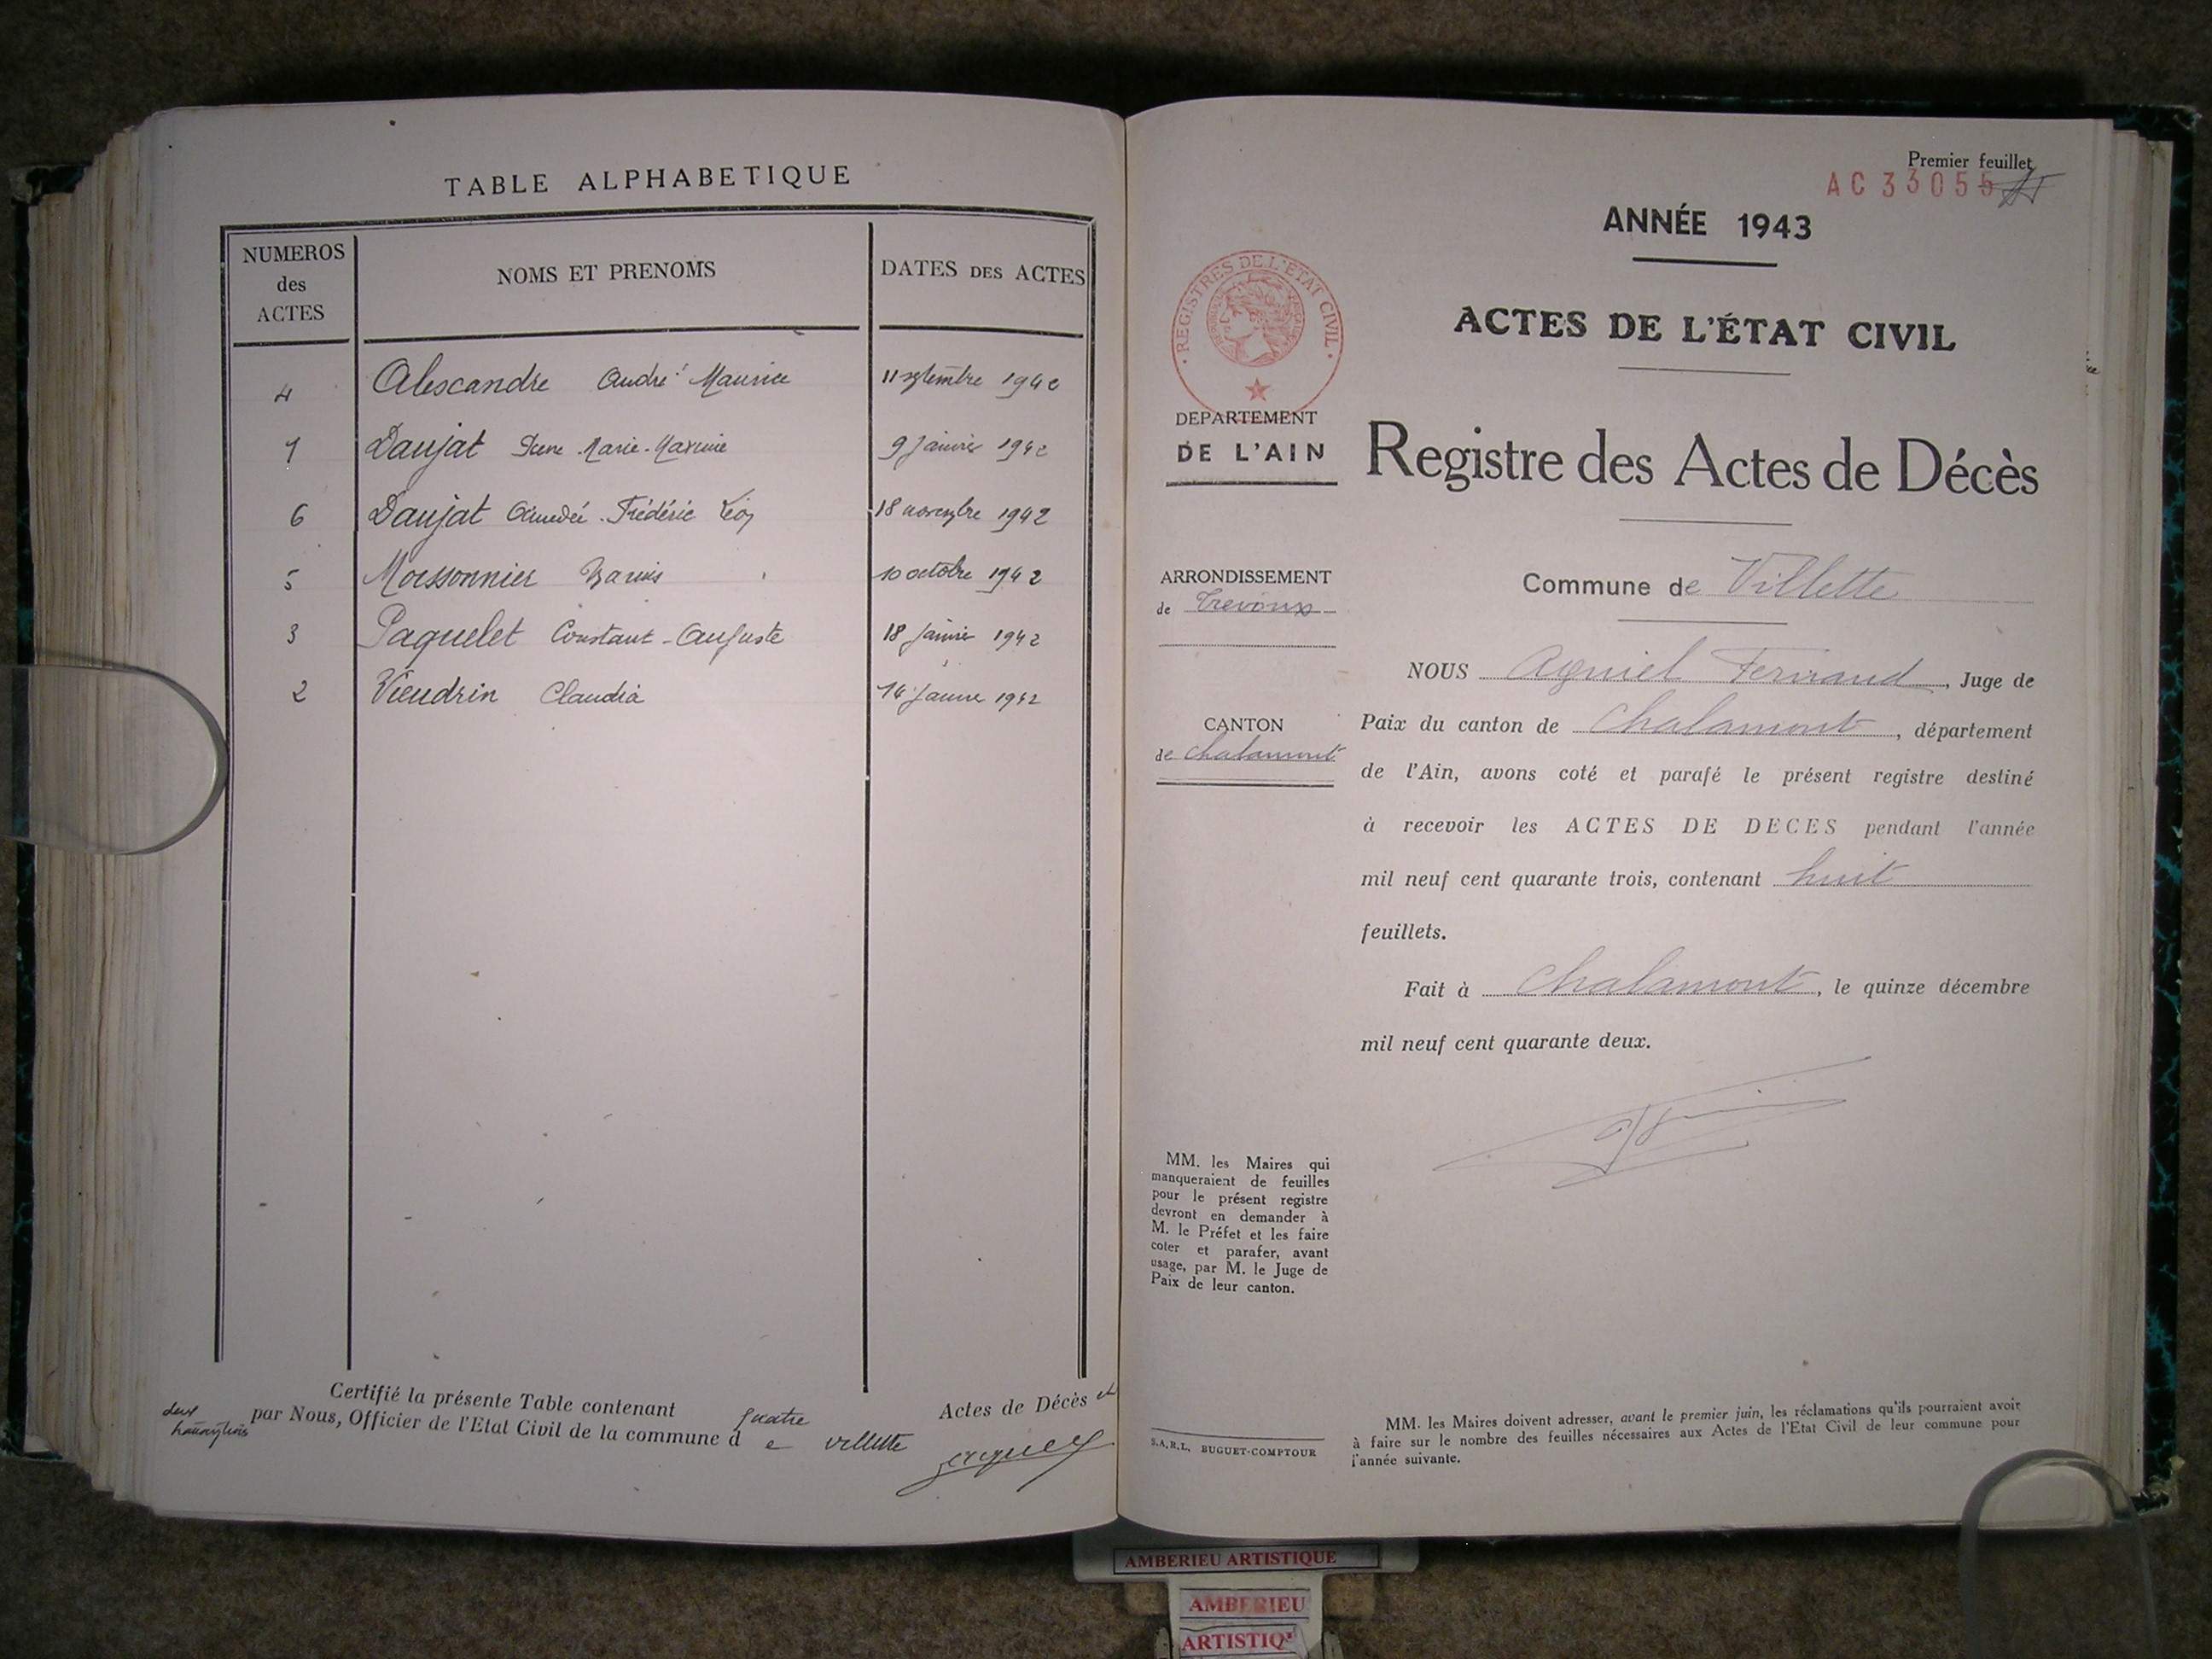 TABLE ALPHABETIQUE
NUMEROS des ACTES
NOMS ET PRENOMS
DATES DES ACTES
4 Alescandre André Maurice 11 septembre 1942
1 Daujat Marie-Maxime 9 janvier 1942
6 Daujat Amedée-Frédéric Léon 18 novembre 1942
5 Moissonnier 10 octobre 1942
3 Paquelet Constant-Auguste 18 janvier 1942
2 Vieudrin Claudia 14 janvier 1942
Certifié la présente Table contenant quatre Actes de Décès et
deux transcriptions par Nous, Officier de l'Etat Civil de la commune de villette
Premier feuillet
AC 33055
ANNÉE 1943
ACTES DE L'ÉTAT CIVIL
REGISTRES DE L'ÉTAT CIVIL
DEPARTEMENT
DE L'AIN
Registre des Actes de Décès
ARRONDISSEMENT
de Trevoux
Commune de Villette
CANTON
de Chalamont
NOUS Agniel Fernand, Juge de
Paix du canton de Chalamont, département
de l'Ain, avons coté et parafé le présent registre destiné
à recevoir les ACTES DE DECES pendant l'année
mil neuf cent quarante trois, contenant huit
feuillets.
Fait à Chalamont, le quinze décembre
mil neuf cent quarante deux.
MM. les Maires qui
manqueraient de feuilles
pour le présent registre
devront en demander à
M. le Préfet et les faire
coter et parafer, avant
usage, par M. le Juge de
Paix de leur canton.
S.A.R.L. BUGUET-COMPTOUR
MM. les Maires doivent adresser, avant le premier juin, les réclamations qu'ils pourraient avoir
à faire sur le nombre des feuilles nécessaires aux Actes de l'Etat Civil de leur commune pour
l'année suivante.
AMBERIEU ARTISTIQUE
AMBERIEU
ARTISTIQ